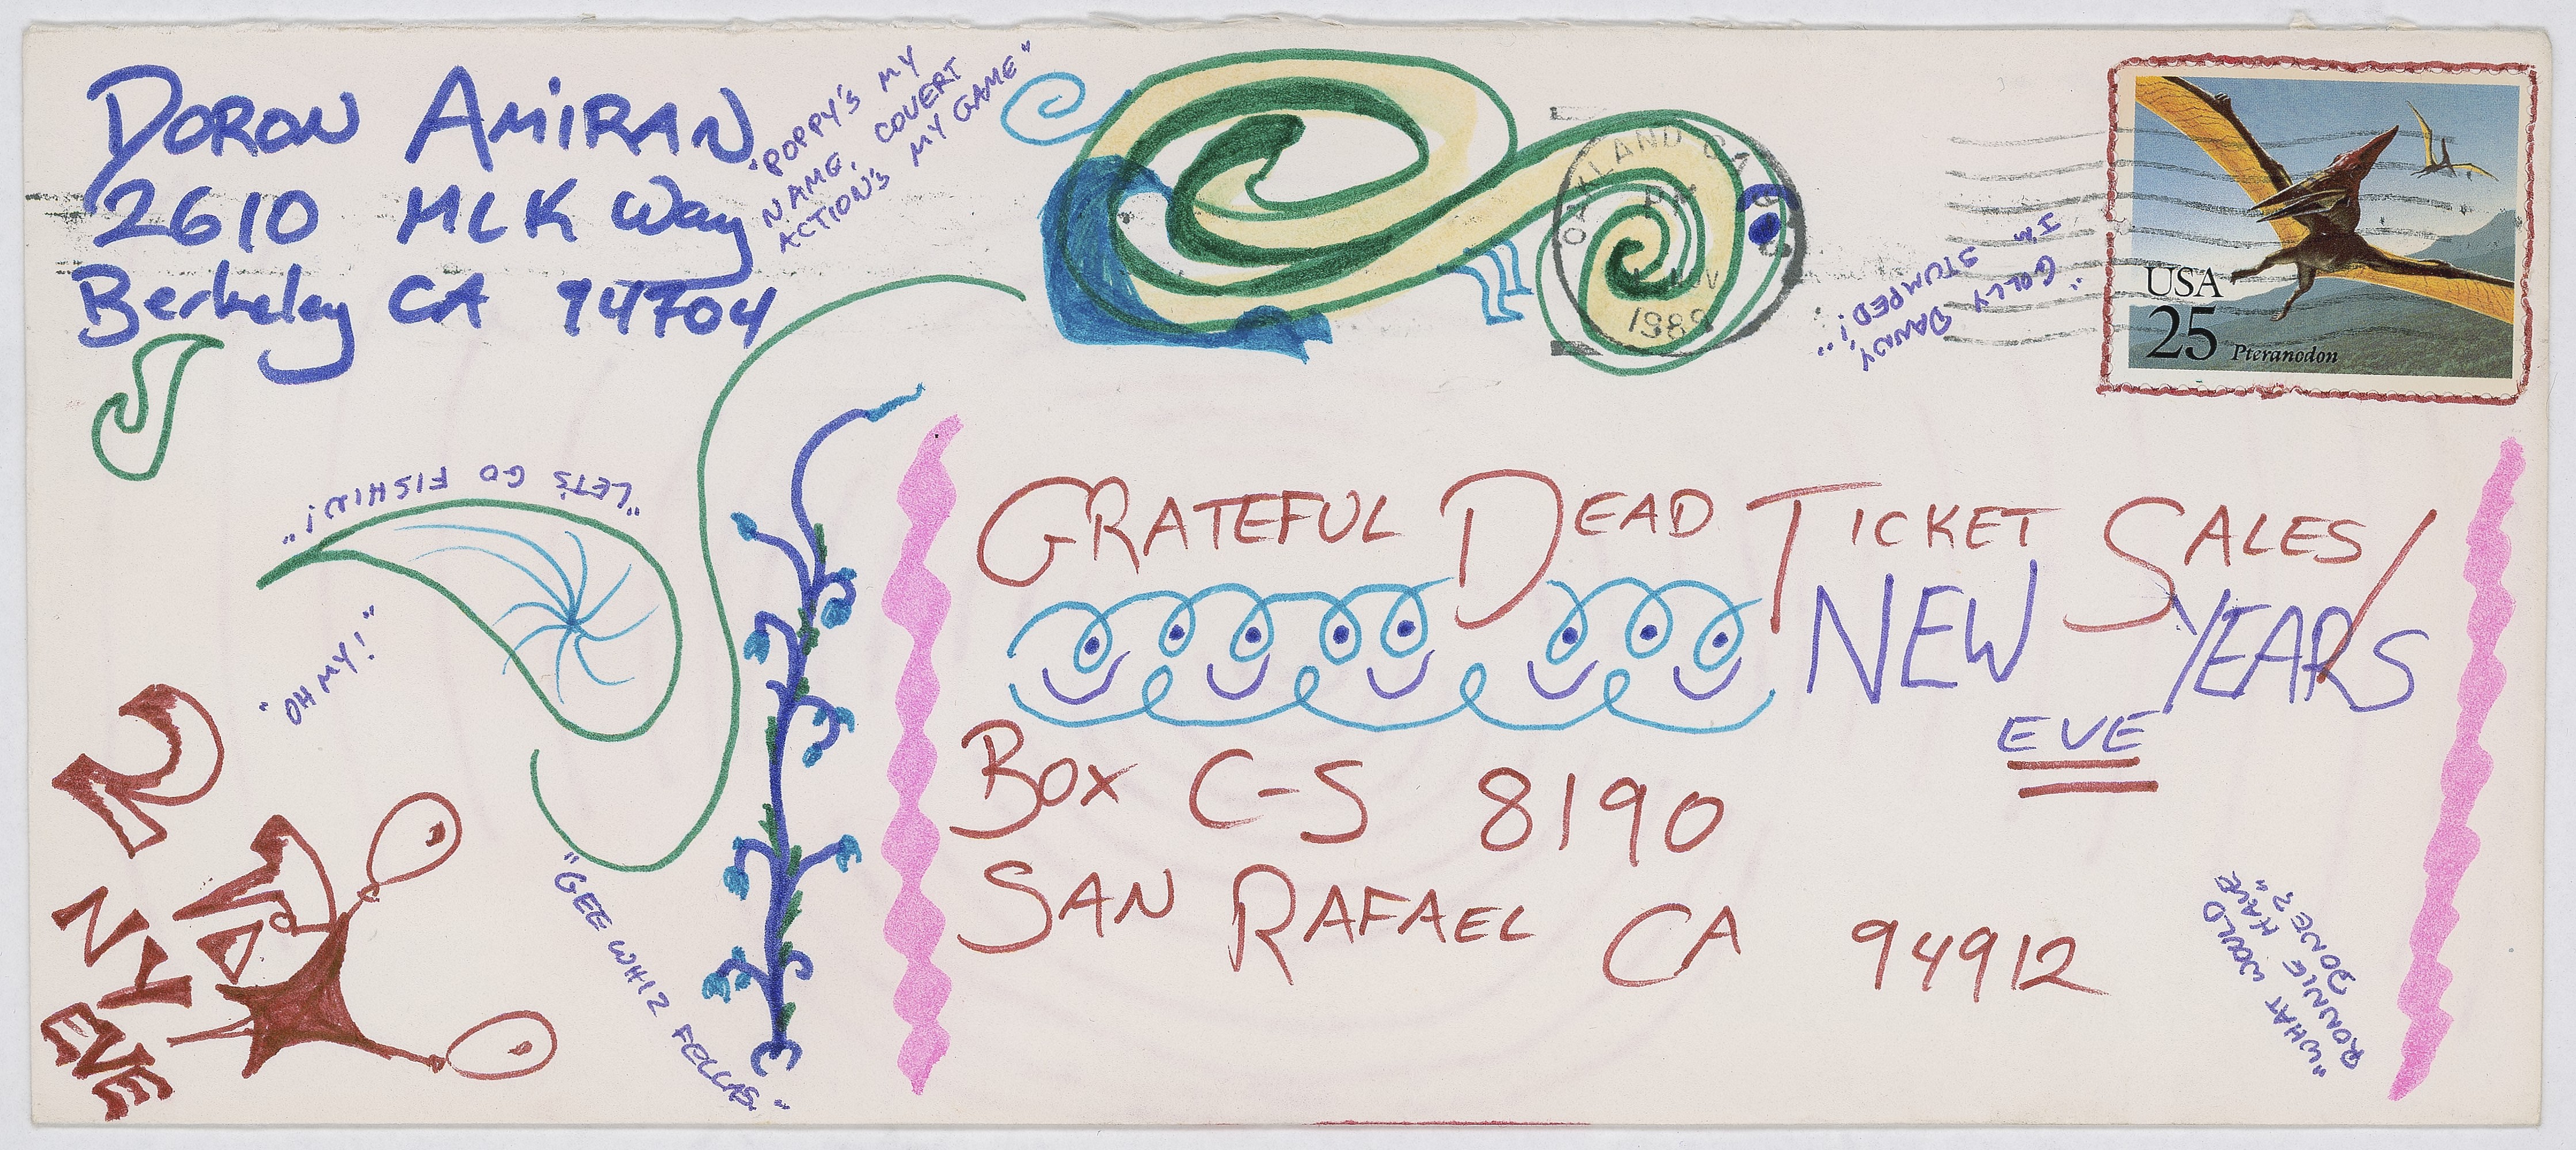 DORON AMIRAN
2610 MLK Way
Berkeley CA 94704
"POPPY'S MY
NAME, COVERT
ACTION'S MY GAME"
OAKLAND CA
PM
NOV
1989
"GOLLY I'M
DANNY STUMPED!"
USA
25 Pteranodon
"LET'S GO FISHIN!"
"OH MY!"
"GEE WHIZ FELLAS."
GRATEFUL DEAD TICKET SALES/
NEW YEARS
EVE
BOX C-S 8190
SAN RAFAEL CA 94912
"WHAT WOULD
RONNIE HAVE
DONE?"
2
NY
EVE